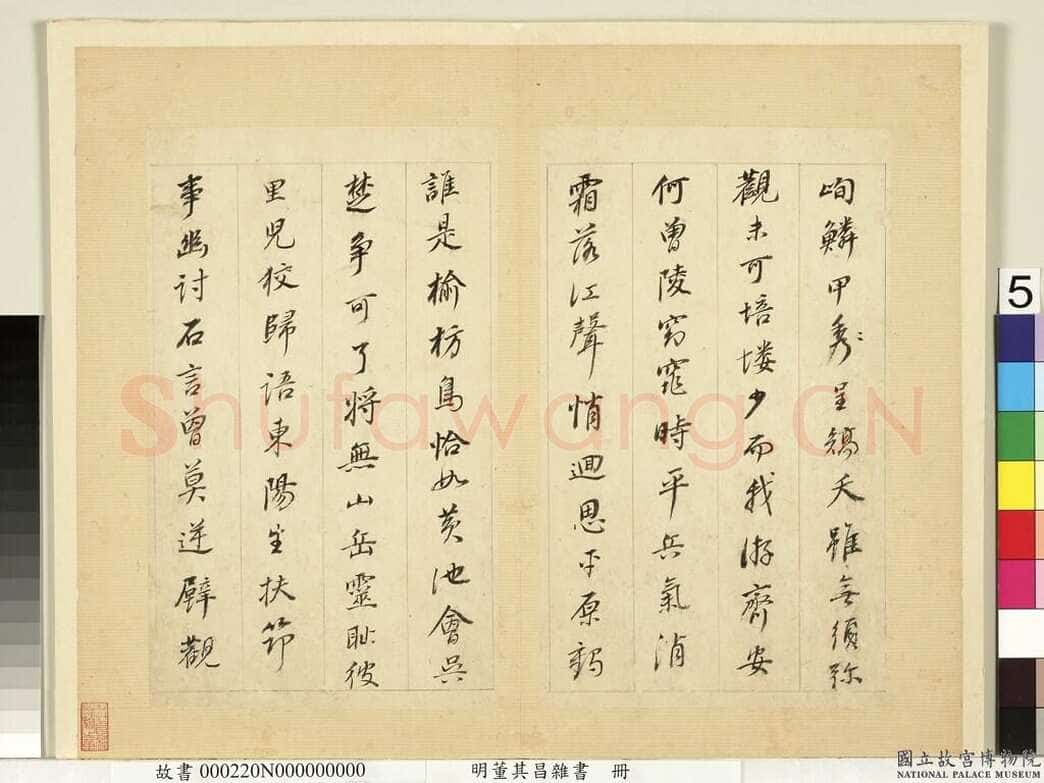 峋鱗甲秀〻呈鵶夭雖無須弥
觀未可培塿少而我游齊安
何曾陵窈窕時平兵氣消
霜落江聲悄迴思平原
誰是榆枋鳥恰如黃池會吳
楚爭可了將無山岳靈耻彼
里兒狡歸語東陽生扶笻
事幽討石言曾莫逆壁觀
Shufawang.CN
5
故書 000220N000000000
明董其昌雜書 冊
國立故宮博物院
NATIONAL PALACE MUSEUM